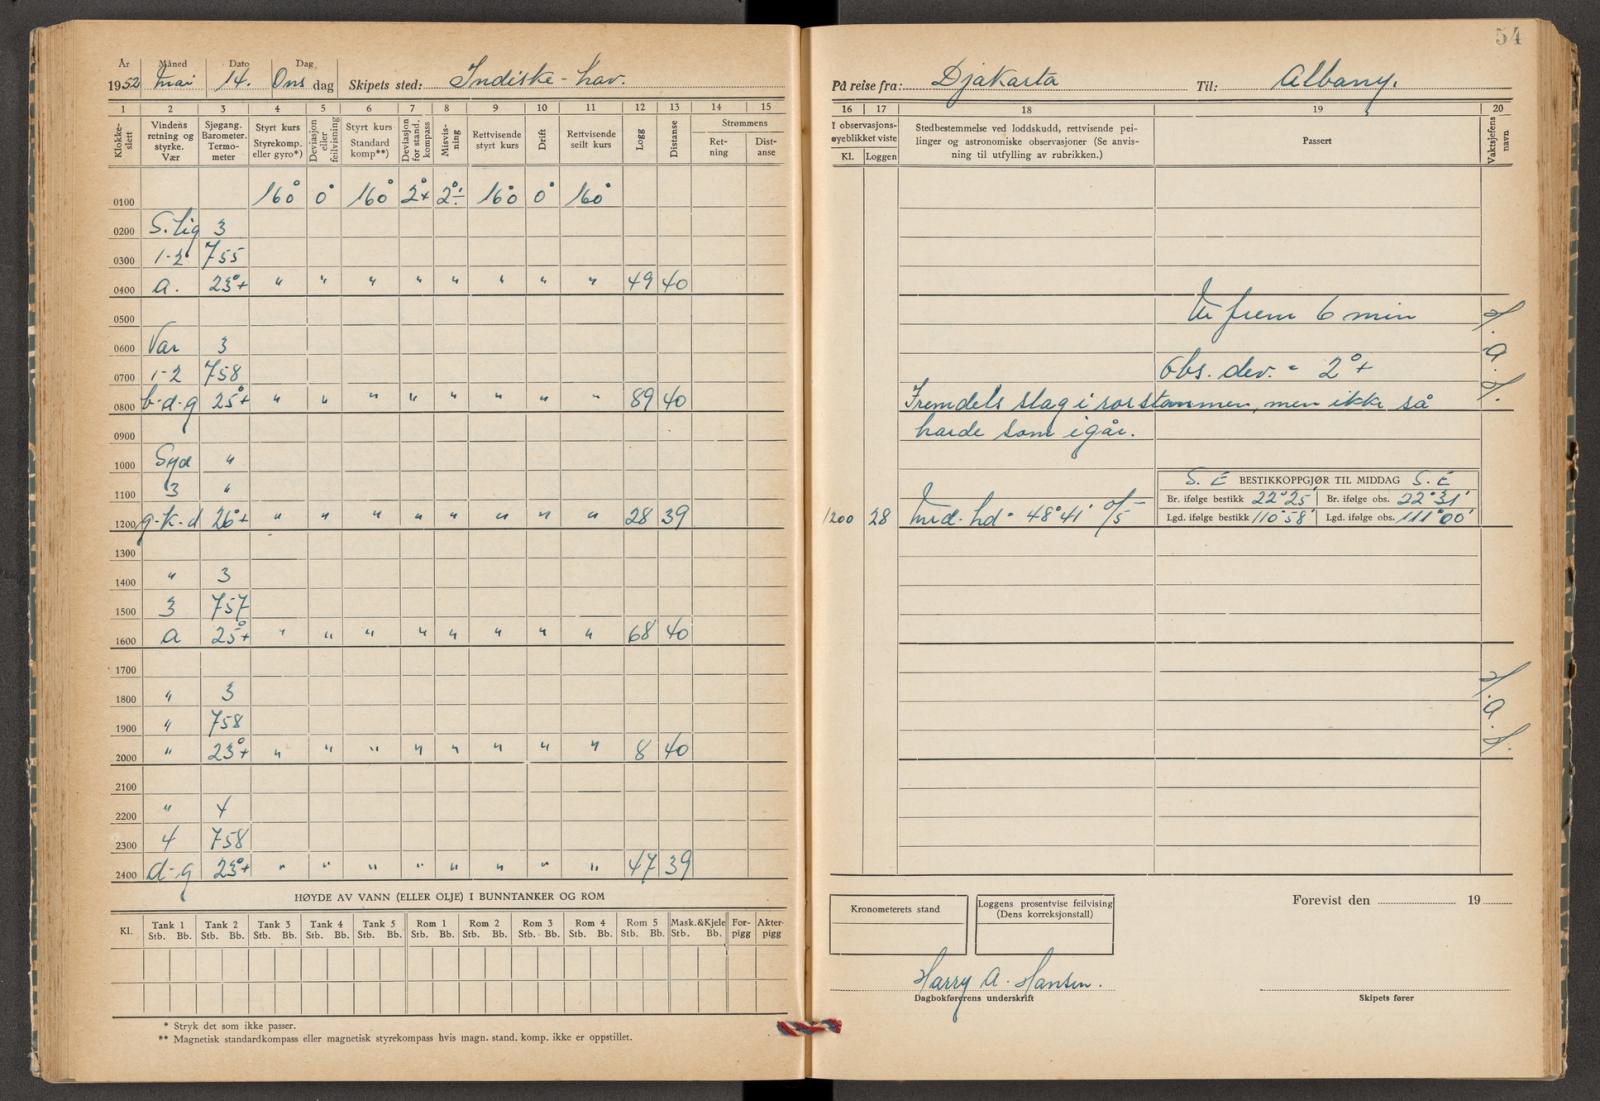 År Måned Dato Dag
1952 Mai 14. Ons dag Skipets sted: Indiske-hav.
1 2 3 4 5 6 7 8 9 10 11 12 13 14 15
Klokke-slett
Vindens retning og styrke. Vær
Sjøgang. Barometer. Termo-meter
Styrt kurs Styrekomp. eller gyro*)
Deviasjon eller feilvisning
Styrt kurs Standard komp**)
Deviasjon for stand. kompass
Misvis-ning
Rettvisende styrt kurs
Drift
Rettvisende seilt kurs
Logg
Distanse
Strømmens
Ret-ning
Dist-anse
0100 160° 0° 160° 2°+ 2°÷ 160° 0° 160°
0200 S. lig 3
0300 1-2 755
0400 a. 23°+ " " " " " " " " 49 40
0500
0600 Var 3
0700 1-2 758
0800 b-d-g 25°+ " " " " " " " " 89 40
0900
1000 Syd "
1100 3 "
1200 g-k-d 26°+ " " " " " " " " 28 39
1300
1400 " 3
1500 3 757
1600 a 25°+ " " " " " " " " 68 40
1700
1800 " 3
1900 " 758
2000 " 23°+ " " " " " " " " 8 40
2100
2200 " 4
2300 4 758
2400 d-g 23°+ " " " " " " " " 47 39
HØYDE AV VANN (ELLER OLJE) I BUNNTANKER OG ROM
Kl. Tank 1 Tank 2 Tank 3 Tank 4 Tank 5 Rom 1 Rom 2 Rom 3 Rom 4 Rom 5 Mask.&Kjele For-pigg Akter-pigg
Stb. Bb. Stb. Bb. Stb. Bb. Stb. Bb. Stb. Bb. Stb. Bb. Stb. Bb. Stb. Bb. Stb. Bb. Stb. Bb. Stb. Bb.
* Stryk det som ikke passer.
** Magnetisk standardkompass eller magnetisk styrekompass hvis magn. stand. komp. ikke er oppstillet.
54
På reise fra: Djakarta Til: Albany.
16 17 18 19 20
I observasjons-øyeblikket viste
Kl. Loggen
Stedbestemmelse ved loddskudd, rettvisende pei-
linger og astronomiske observasjoner (Se anvis-
ning til utfylling av rubrikken.)
Passert
Vaktsjefens navn
Ur frem 6 min
H.
a.
H.
Obs. dev. = 2°+
Fremdels slag i rorstammen, men ikke så
harde som igår.
S. E BESTIKKOPPGJØR TIL MIDDAG S. E
Br. ifølge bestikk 22°25' Br. ifølge obs. 22°31'
1200 28 Mid. hd = 48°41' o/5 Lgd. ifølge bestikk 110°58' Lgd. ifølge obs. 111°00'
H.
a.
H.
Kronometerets stand
Loggens prosentvise feilvising
(Dens korreksjonstall)
Forevist den 19
Harry A. Hansen.
Dagbokførerens underskrift
Skipets fører